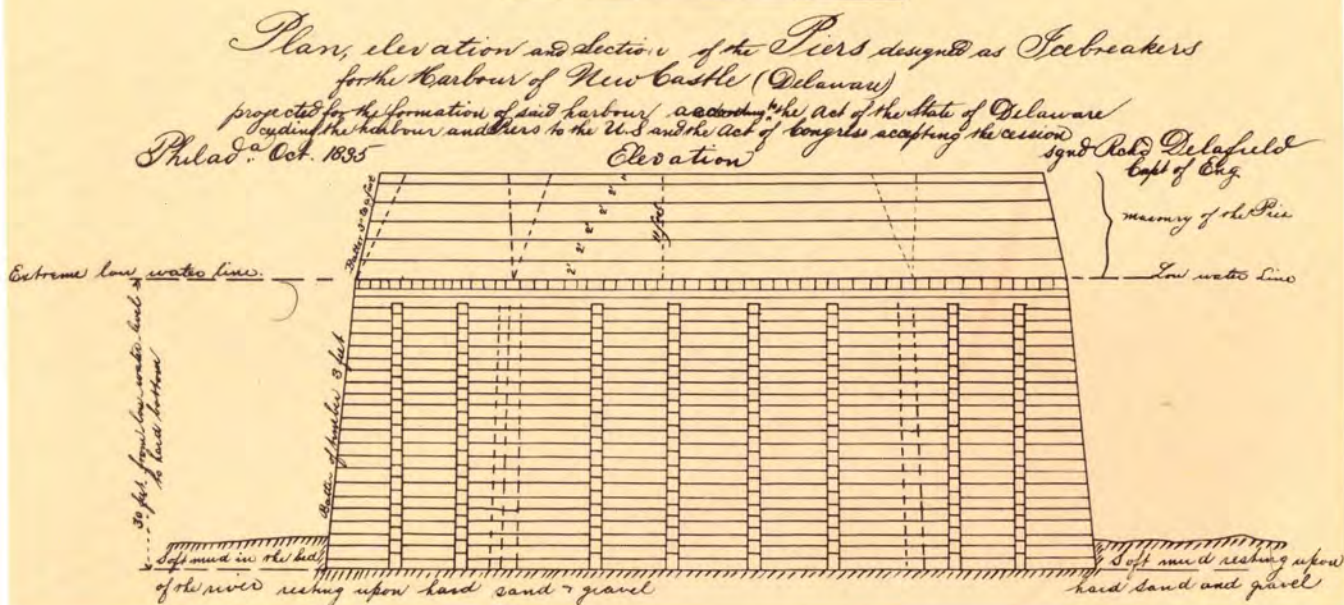 Plan, elevation and Section of the Piers designed as Icebreakers
for the Harbour of New Castle (Delaware)
projected for the formation of said harbour according to the Act of the State of Delaware
ceding the harbour and Piers to the U.S and the Act of Congress accepting the cession
Philad.a Oct. 1835
Elevation
sgnd Rchd Delafield
Capt of Eng
masonry of the Pier
Batter 3" to a foot
2' 2' 2' 2' 1'
11 feet
Extreme low water line.
Low water Line
30 feet from low water level
to hard bottom
Batter of timber 3 feet
Soft mud in the bed
of the river resting upon hard sand & gravel
Soft mud resting upon
hard sand and gravel